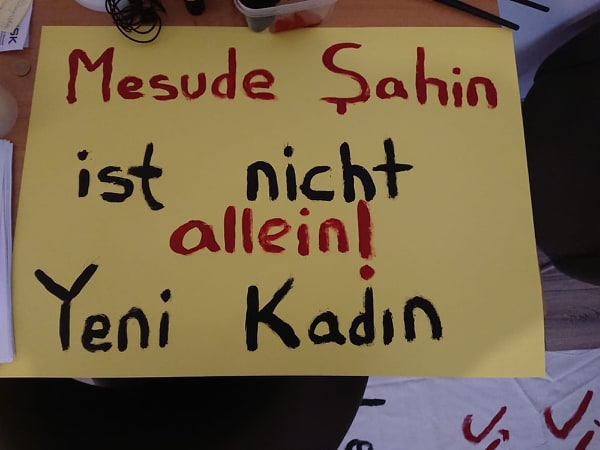 Mesude Şahin
ist nicht
allein!
Yeni Kadın